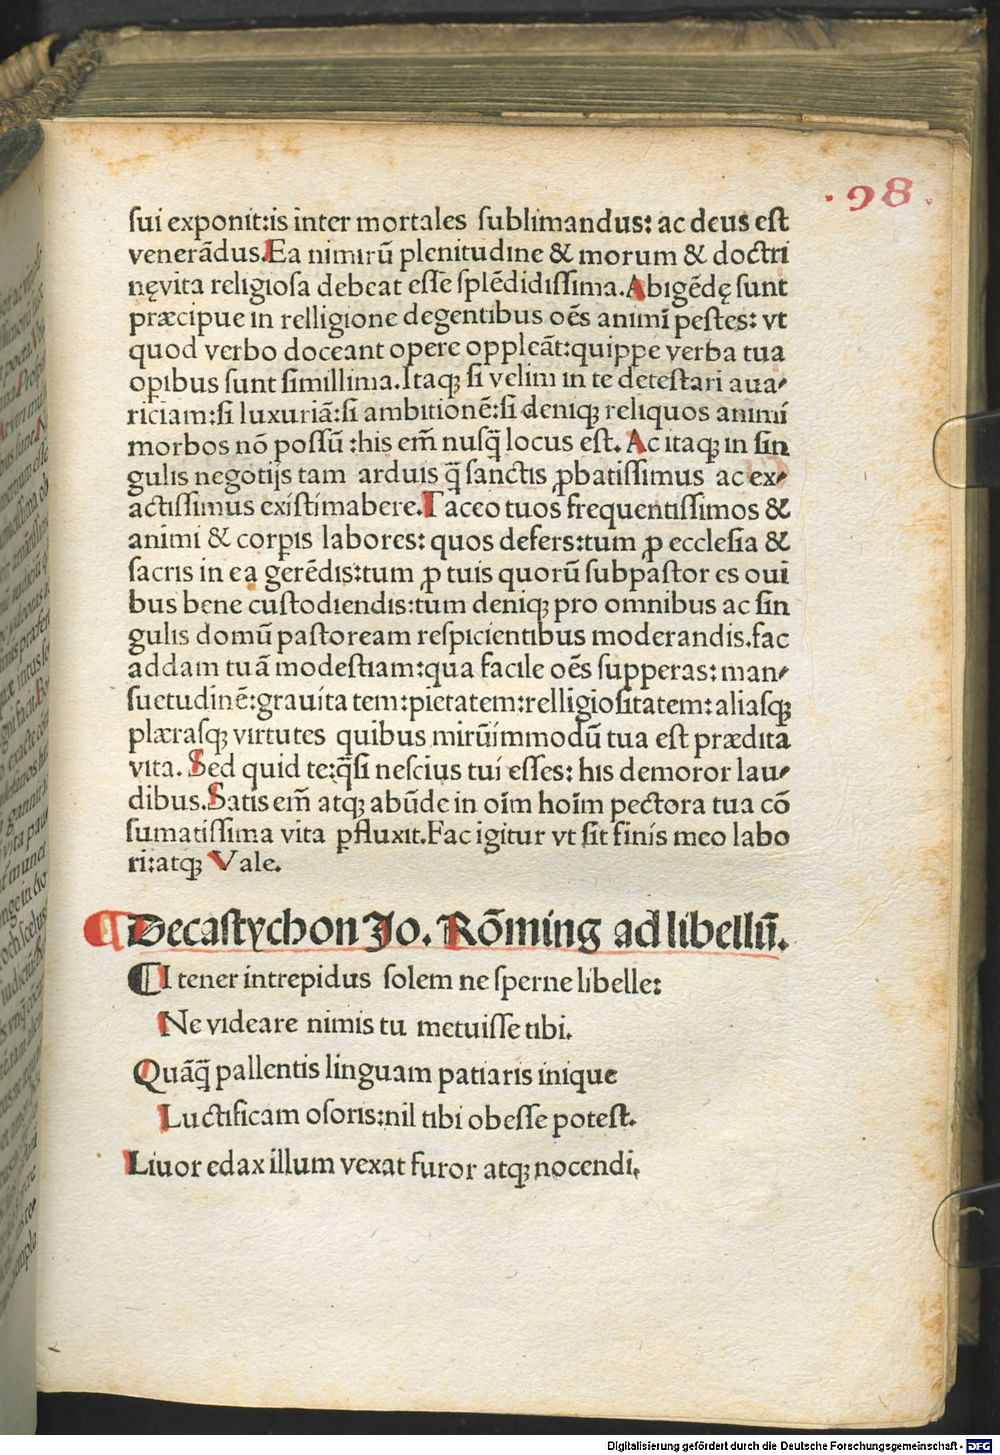 ·98·
sui exponit:is inter mortales sublimandus: ac deus est
venerādus.Ea nimirū plenitudine & morum & doctri
nęvita religiosa debeat esse splēdidissima.Abigēdę sunt
præcipue in relligione degentibus oēs animī pestes: vt
quod verbo doceant opere oppleāt:quippe verba tua
opibus sunt simillima.Itaqꝫ si velim in te detestari aua⸗
riciam:si luxuriā:si ambitionē:si deniqꝫ reliquos animi
morbos nō possū :his em̄ nusq̄ locus est. Ac itaqꝫ in sin
gulis negotijs tam arduis q̄ sanctis ꝓbatissimus ac ex⸗
actissimus existimabere.Taceo tuos frequentissimos &
animi & corꝑis labores: quos defers:tum ꝓ ecclesia &
sacris in ea gerēdis:tum ꝓ tuis quorū subpastor es oui
bus bene custodiendis:tum deniqꝫ pro omnibus ac sin
gulis domū pastoream respicientibus moderandis.fac
addam tuā modestiam:qua facile oēs supperas: man⸗
suetudinē:grauita tem:pietatem:relligiositatem: aliasqꝫ
plærasqꝫ virtutes quibus mirūimmodū tua est prædita
vita. Sed quid te:q̄si nescius tui esses: his demoror lau⸗
dibus.Satis em̄ atqꝫ abūde in oīm hoīm pectora tua cō
sumatissima vita ꝓfluxit.Fac igitur vt sit finis meo labo
ri:atqꝫ Vale.
¶Decastychon Jo. Rōming ad libellū.
¶I tener intrepidus solem ne sperne libelle:
Ne videare nimis tu metuisse tibi.
Quāq̄ pallentis linguam patiaris inique
Luctificam osoris:nil tibi obesse potest.
Liuor edax illum vexat furor atqꝫ nocendi,
Digitalisierung gefördert durch die Deutsche Forschungsgemeinschaft - DFG